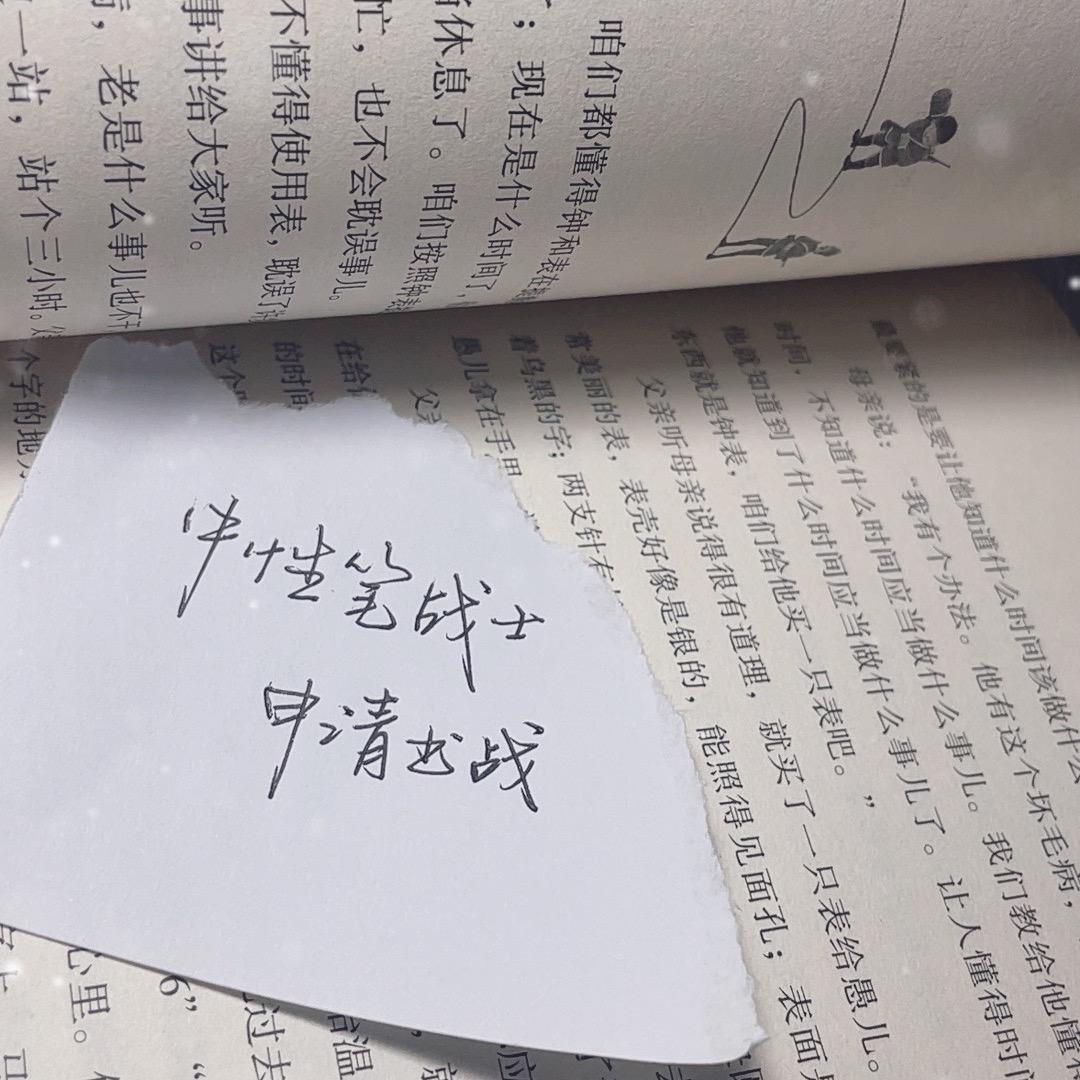 中性笔战士
申请出战
咱们都懂得钟和表在
；现在是什么时间了，
休息了。咱们按照钟表
忙，也不会耽误事儿。
不懂得使用表，耽误了
事讲给大家听。
，老是什么事儿也不
一站，站个三小时。
最要紧的是要让他知道什么时间该做什么
母亲说：“我有个办法。他有这个坏毛病，
时间，不知道什么时间应当做什么事儿。我们教给他懂得
他就知道到了什么时间应当做什么事儿了。让人懂得时间
东西就是钟表，咱们给他买一只表吧。”
父亲听母亲说得很有道理，就买了一只表给愚儿。
常美丽的表，表壳好像是银的，能照得见面孔；表面
着乌黑的字；两支针
愚儿拿在手里
父亲
在给
的时间
这个
过去
6”
心里。
个字的地方